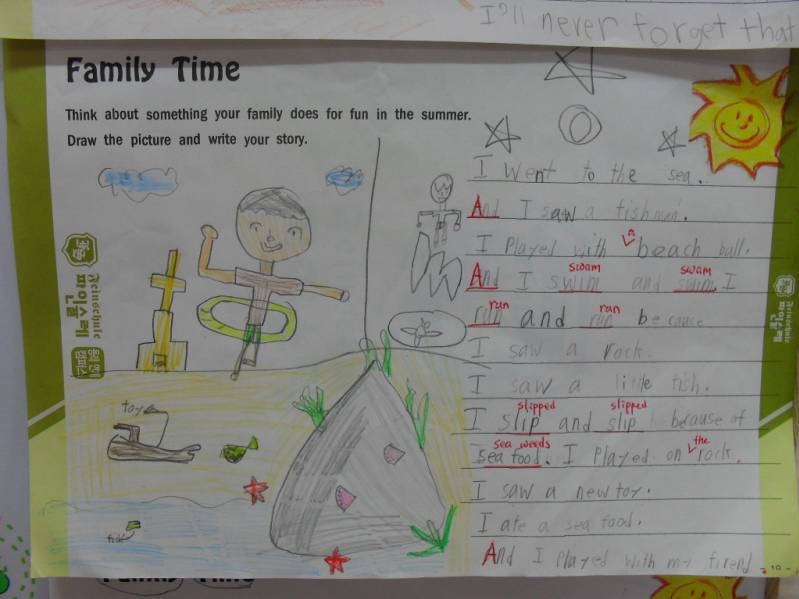 I'll never forget that
Family Time
Think about something your family does for fun in the summer.
Draw the picture and write your story.
I went to the sea.
And I saw a fishman.
a
I Played with beach ball.
swam swam
And I swim and swim. I
run ran
run and run because
I saw a rock.
I saw a little fish.
slipped slipped
I slip and slip because of
sea weeds the
sea food. I Played on rock.
I saw a new toy.
I ate a sea food.
And I Played with my firend
toy
fish
Feinschule
파인슐레
Family Time